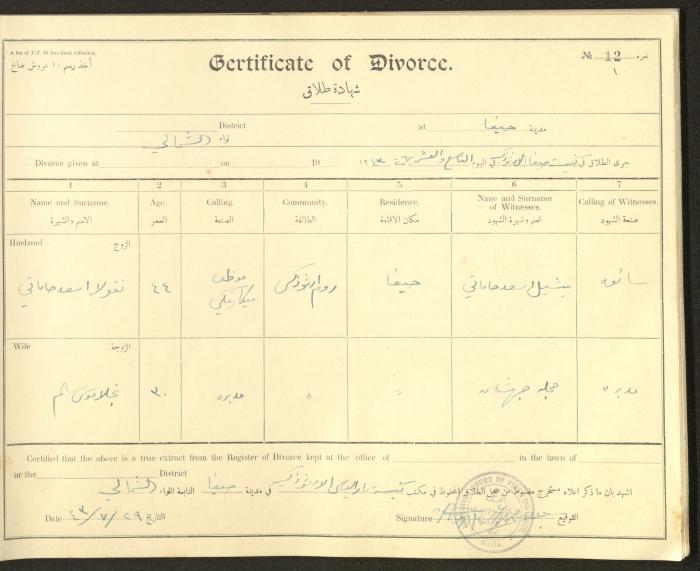 A fee of P.T. 10 has been collected.
أخذ رسم ١٠ غروش صاغ
Certificate of Divorce.
№ 12 نمره
١
شهادة طلاق
District at مدينة حيفا
لواء الشمالي
Divorce given at on 19 جرى الطلاق في كنيسة حيفا الارثوذكس في اليوم التاسع والعشرين سنة ١٩٤٣
1 2 3 4 5 6 7
Name and Surname. Age. Calling. Community. Residence. Name and Surname of Witnesses. Calling of Witnesses.
الاسم والشهرة العمر الصنعة الطائفة مكان الاقامة اسم وشهرة الشهود صنعة الشهود
Husband الزوج
نقولا اسعد حاماتي ٤٤ موظف ميكانيكي روم ارثوذكس حيفا ميشيل اسعد حاماتي سائق
Wife الزوجة
نجلا موسى سالم ٣٠ مدبره " " مدبره
Certified that the above is a true extract from the Register of Divorce kept at the office of in the town of
in the District
اشهد بان ما ذكر اعلاه مستخرج مضبوط من سجل الطلاق المحفوظ في مكتب كنيسة الارثوذكسية في مدينة حيفا التابعة اللواء الشمالي
Date ٤٣/٧/٢٩ التاريخ Signature التوقيع